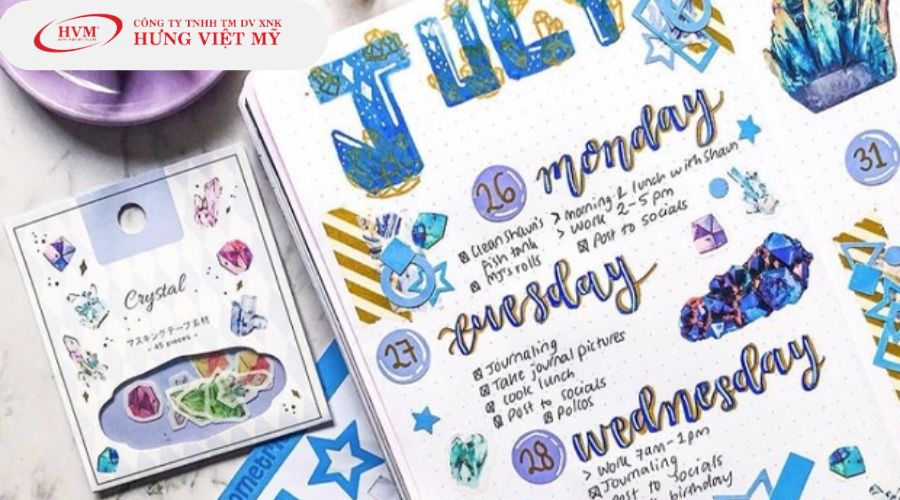 HVM
CÔNG TY TNHH TM DV XNK
HƯNG VIỆT MỸ
JULY
26
monday
Clean Shawn's
fish tank
MJ's rolls
> morning & lunch with Shawn
> Work 2-5 pm
Post to socials
31
Crystal
マスキングテープ素材
- 45 pieces -
27
tuesday
Journaling
Take journal pictures
Cook lunch
Post to socials
Polcos
28
wednesday
> Work 7am-1pm
Journaling
Post to socials
birthday